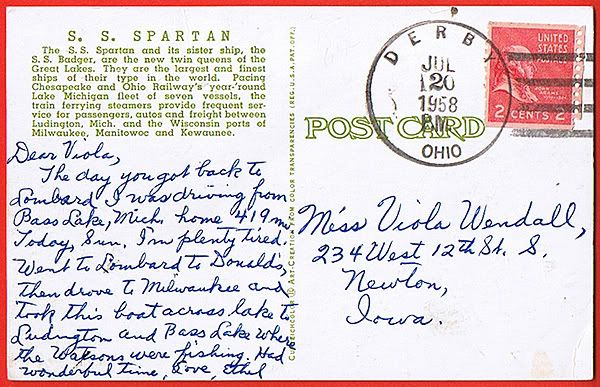 S. S. SPARTAN
The S. S. Spartan and its sister ship, the
S. S. Badger, are the new twin queens of the
Great Lakes. They are the largest and finest
ships of their type in the world. Pacing
Chesapeake and Ohio Railway's year-'round
Lake Michigan fleet of seven vessels, the
train ferrying steamers provide frequent serv-
ice for passengers, autos and freight between
Ludington, Mich. and the Wisconsin ports of
Milwaukee, Manitowoc and Kewaunee.
Dear Viola,
The day you got back to
Lombard I was driving from
Bass Lake, Mich. home 419 m.
Today, Sun, I'm plenty tired.
Went to Lombard to Donald's,
then drove to Milwaukee and
took this boat across lake to
Ludington and Bass Lake where
the Watsons were fishing. Had
wonderful time, Love, Ethel
ART-CREATION FROM COLOR TRANSPARENCIES (REG. U.S.A. PAT. OFF.)
POST CARD
DERBY
JUL
20
1958
PM
OHIO
UNITED
STATES
POSTAGE
JOHN ADAMS
2 CENTS 2
Miss Viola Wendall,
234 West 12th St. S.
Newton,
Iowa.